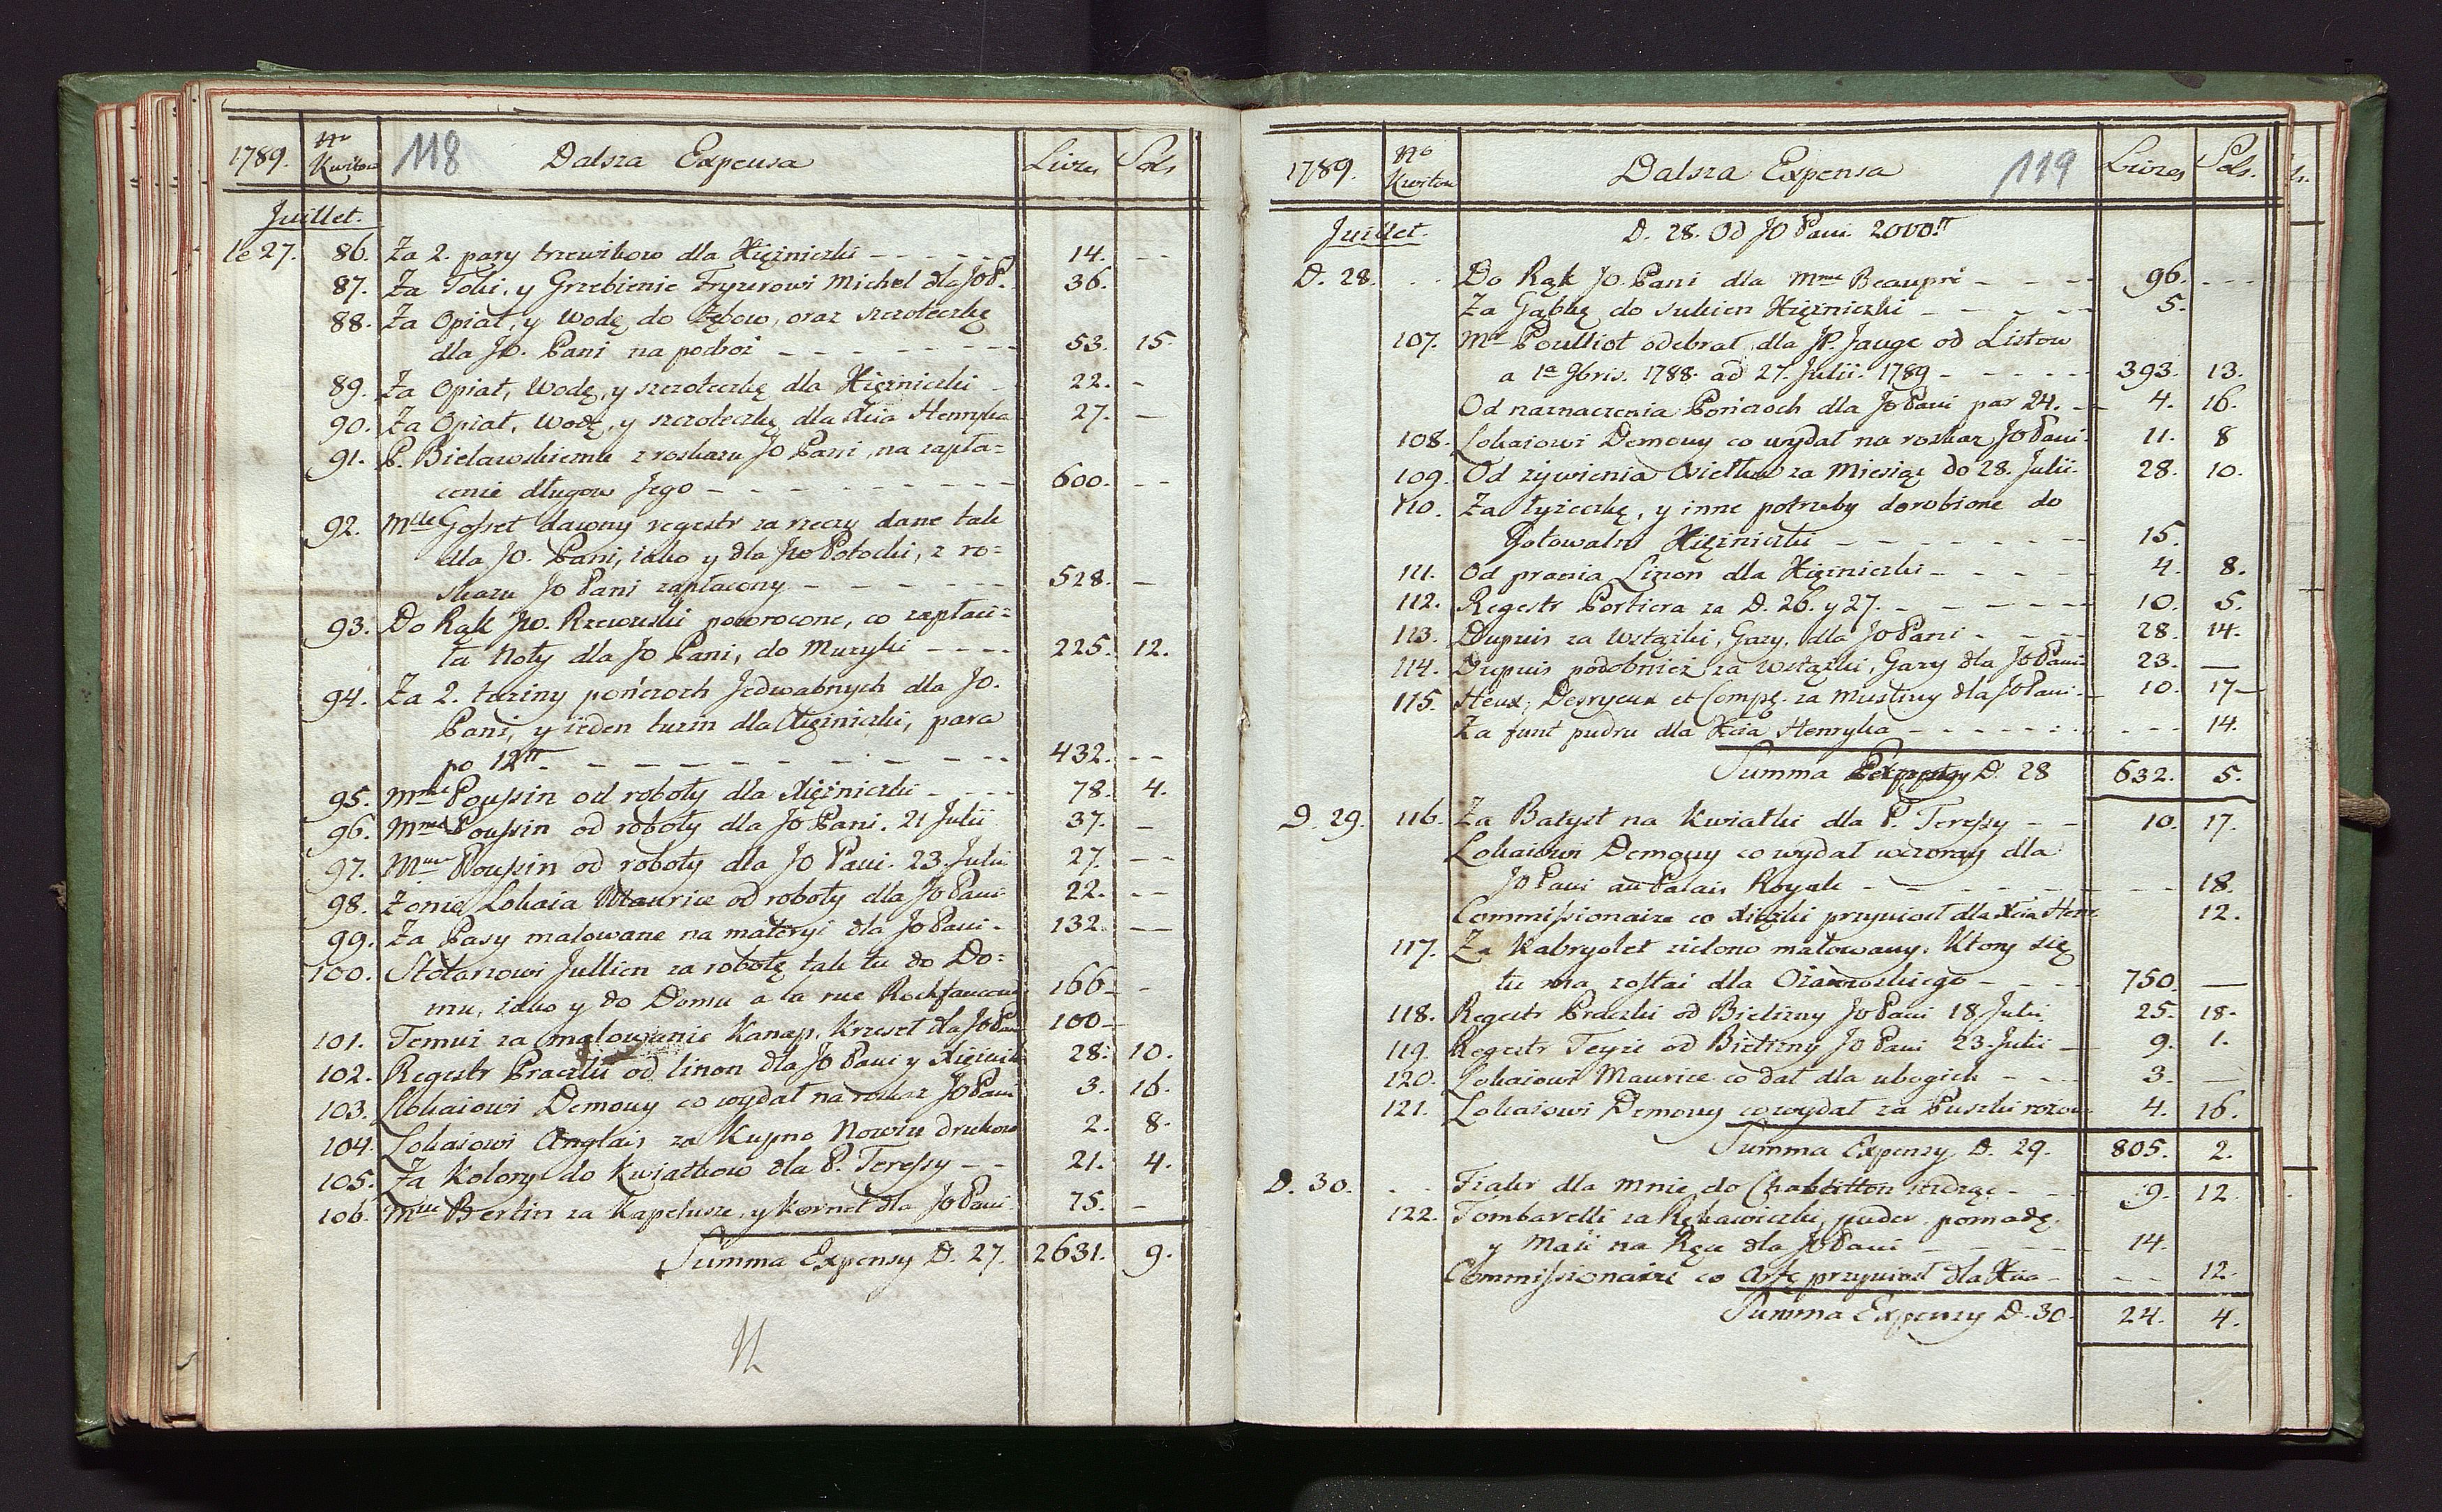 1789. No Kwitow 118 Dalsza Expensa Livres Sols
Juillet.
le 27. 86. Za 2. pary trzewikow dla Xiężniczki - - - - - 14. - -
87. Za Toki, y Grzebienie Fryzerowi Michel dla JOP. 36.
88. Za Opiat, y Wodę do Zębow, oraz szczoteczkę
dla JO. Pani na podroż - - - - - - - - 53. 15.
89. Za Opiat, Wodę, y szczoteczkę dla Xiężniczki - 22. -
90. Za Opiat, Wodę, y szczoteczkę dla Xcia Henryka 27. -
91. P. Bielawskiemu z roskazu JO Pani, na zapła=
cenie długow Jego - - - - - - - - - 600. - -
92. Mlle Gosset dawny regestr za rzeczy dane tak
dla JO. Pani, iako y dla JW Potocki, z ro=
skazu JO Pani zapłacony - - - - - - 528. -
93. Do Rąk JW. Rzewuski powrocone, co zapłaci=
ła Noty dla JO Pani, do Muzyki - - - - 225. 12.
94. Za 2. tuziny pończoch Jedwabnych dla JO.
Pani, y ieden tuzin dla Xiężniczki, para
po 12tt. - - - - - - - - - - - 432. - -
95. Mme Poussin od roboty dla Xiężniczki - - - - 78. 4.
96. Mme Poussin od roboty dla JO Pani. 21 Julii 37. -
97. Mme Poussin od roboty dla JO Pani. 23. Julii 27. - -
98. Zonie Lokaia Maurice od roboty dla JO Pani 22. - -
99. Za Pasy malowane na materyi dla JO Pani - 132. - -
100. Stolarzowi Jullien za robotę tak tu do Do=
mu, iako y do Domu a la rue Rochfaucou 166. -
101. Temuż za malowanie Kanap, Krzeseł dla JO Pani 100 -
102. Regestr Praczki od linon dla JO Pani y Xiężnicz 28. 10.
103. Lokaiowi Demouy co wydał na roskaz JO Pani 3. 16.
104. Lokaiowi Anglais za Kupno Nowin drukow 2. 8.
105. Za Kolory do Kwiatkow dla P. Teressy - - 21. 4.
106. Mlle Bertin za Kapelusze, y Kornet dla JO Pani. 75. -
Summa Expensy D. 27. 2631. 9.
1789. No Kwitow Dalsza Expensa 119 Livres Sols.
Juillet. D. 28. Od JO Pani 2000.tt
D. 28. - - Do Rąk JO. Pani dla Mme Beaupré - - - - 96. - - -
Za Gąbkę do sukien Xiężniczki - - - - - 5.
107. Mr Poulliot odebrał dla JP. Jauge od Listow
a 1a 9bris. 1788. ad 27. Julii. 1789 - - - - - 393. 13.
Od naznaczenia Pończoch dla JO Pani par 24. - 4. 16.
108. Lokaiowi Demouy co wydał na roskaz JO Pani. 11. 8
109. Od żywienia Osiełka za Miesiąc do 28. Julii. 28. 10.
110. Za łyżeczkę, y inne potrzeby dorobione do
Gotowalni Xiężniczki - - - - - - - - 15.
111. Od prania Linon dla Xiężniczki - - - - - 4. 8.
112. Regestr Portiera za D. 26. y 27. - - - - - - 10. 5.
113. Dupuis za Wstążki, Gazy, dla JO Pani - - - - 28. 14.
114. Dupuis podobnież za Wstążki, Gazy dla JO Pani 23. -
115. Heux, Desryeux et Compę. za Musliny dla JO Pani. - 10. 17 -
Za funt pudru dla Xcia Henryka - - - - - - : - - - - 14.
Summa Expensy D. 28 632. 5.
D. 29. 116. Za Batyst na Kwiatki dla P. Teressy - - 10. 17.
Lokaiowi Demouy co wydał wczoray dla
JO Pani au Palais Royale - - - - - - - - - 18.
Commissionaire co Xiążki przyniosł dla Xcia Hen: 12.
117. Za Kabryolet zielono malowany. Ktory się
tu ma zostać dla Ożarowskiego - - - - 750. -
118. Regestr Praczki od Bielizny JO Pani 18 Julii 25. 18.
119. Regestr Teyże od Bielizny JO Pani 23. Julii - 9. 1.
120. Lokaiowi Maurice co dał dla ubogich - - - - 3. -
121. Lokaiowi Demouy co wydał za Puszki rożow 4. 16.
Summa Expensy D. 29. 805. 2.
D. 30. - - Fiakr dla mnie do wdzęc - - - 9. 12.
122. Tombarelli za Rękawiczki, puder, pomadę
y Maść na Ręce dla JO Pani - - - - - - 14.
Commissionaire co Arfę przyniosł dla Xcia - - - - 12.
Summa Expensy D. 30. 24. 4.